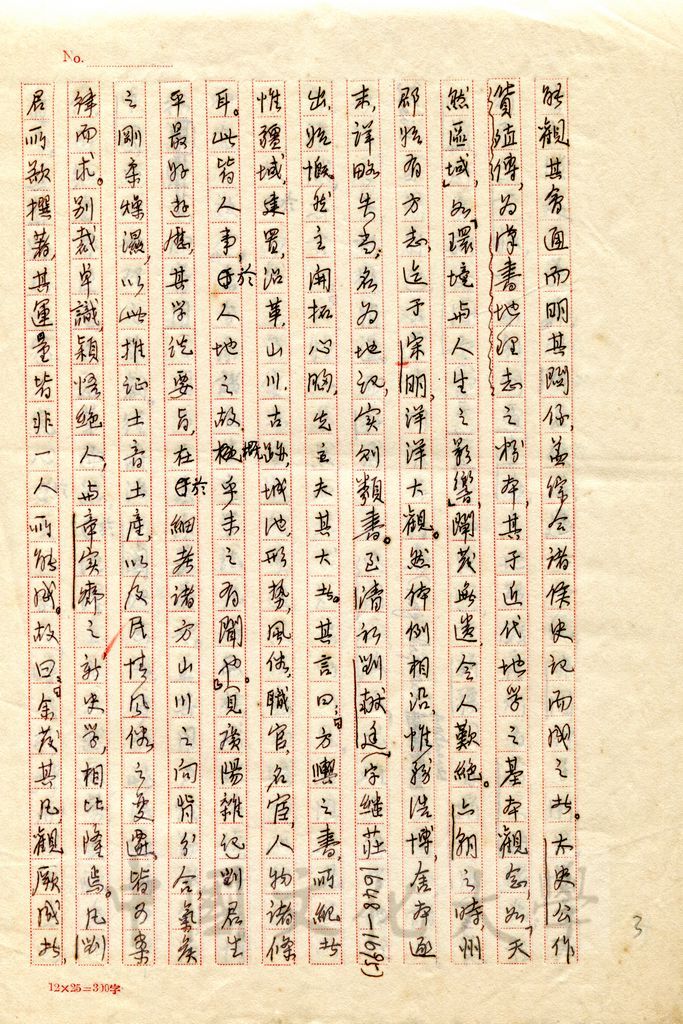 No.
能觀其會通而明其關係，蓋綜合諸侯史記而成之者。太史公作
貨殖傳，為漢書地理志之粉本，其于近代地學之基本觀念，如「天
然區域」，如「環境與人生之影響」，闡發無遺，令人歎絕。六朝之時，州
郡始有方志，迄于宋明，洋洋大觀。然體例相沿，惟務浩博，舍本逐
末，詳略失當，名為地記，實則類書。至清初劉獻廷(字繼莊1648-1695)
出，始慨然主開拓心胸，先立夫其大者。其言曰：「方輿之書，所紀者
惟疆域，建置，沿革，山川，古蹟，城池，形勢，風俗，職官，名宦，人物諸條
耳。此皆人事，於人地之故，概乎未之有聞也。」見廣陽雜紀劉君生
平最好遊歷，其學說要旨，在於細考諸方山川之向背分合，氣候
之剛柔燥濕，以此推征土音土產，以及民情風俗之變遷，皆可案
律而求。別裁卓識，穎悟絕人，與章實齋之新史學，相比隆焉。凡劉
君所欲撰著，其運量皆非一人所能成。故曰：「余發其凡，觀厥成者，
12×25=300字
3
中國文化大學